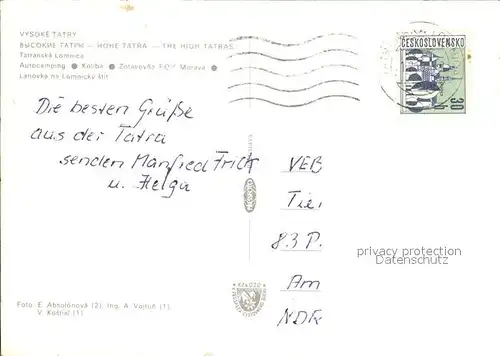 VYSOKÉ TATRY
ВЫСОКИЕ ТАТРЫ — HOHE TATRA — THE HIGH TATRAS
Tatranská Lomnica
Autocamping ● Koliba ● Zotavovňa FDI Morava ●
Lanovka na Lomnický štít
ČESKOSLOVENSKO
30 h
Die besten Grüße
aus der Tatra
senden Manfred Frick
u. Helga
VEB
83 P.
Am
privacy protection
Datenschutz
Foto: E. Absolónová (2), Ing. A. Vojtuň (1),
V. Košťial (1)